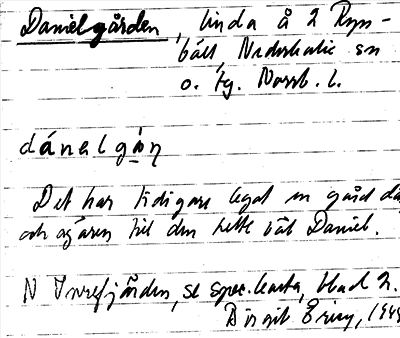 Danielgården, linda å 2 Ryn-
bäck, Nederkalix sn
o. tg. Norrb. l.
dánəlgạ́ṇ
Det har tidigare legat en gård där
och ägaren till den hette väl Daniel.
N Inrefjärden, se spec. karta, blad 2.
Birgit Ericy, 1949